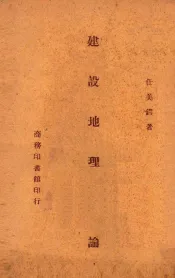 任美鍔著
建設地理論
商務印書館印行